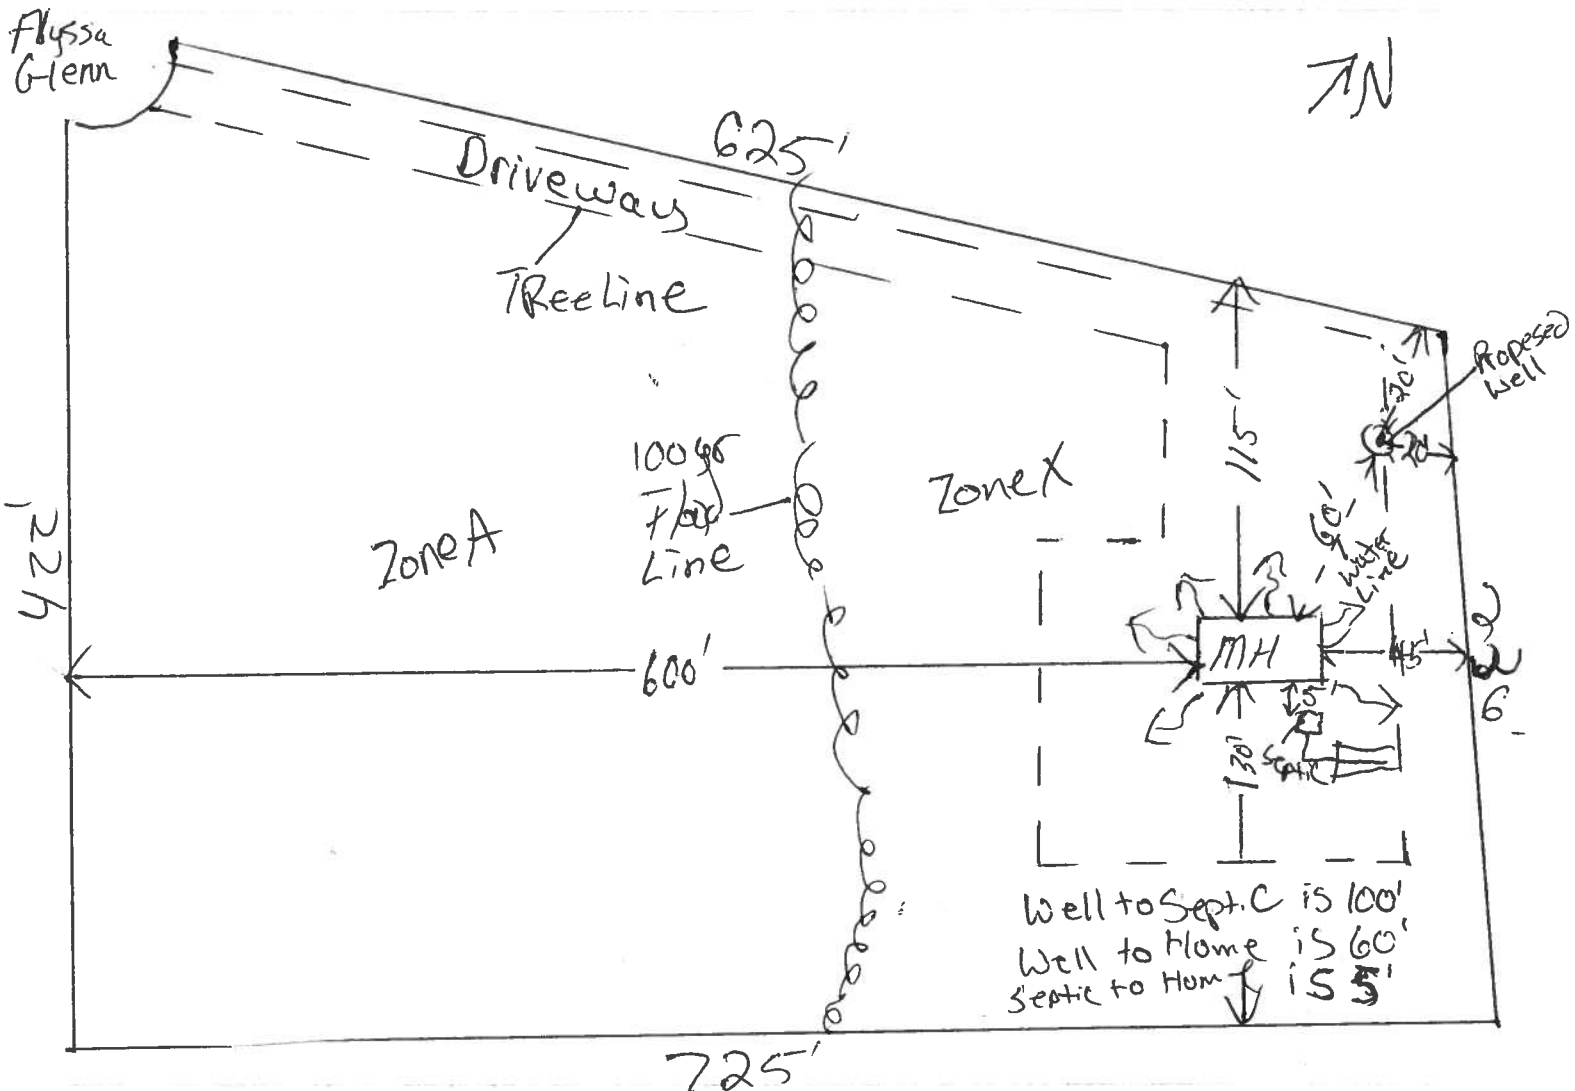 Flyssa
Glenn
N
625'
Driveway
TReeLine
Proposed
Well
20'
115'
20'
100 yr
Flood
Line
Zone X
Zone A
60'
Water
Line
MH
45'
600'
5'
Septic
130'
Well to Septic is 100'
Well to Home is 60'
Septic to Home is 5'
725'